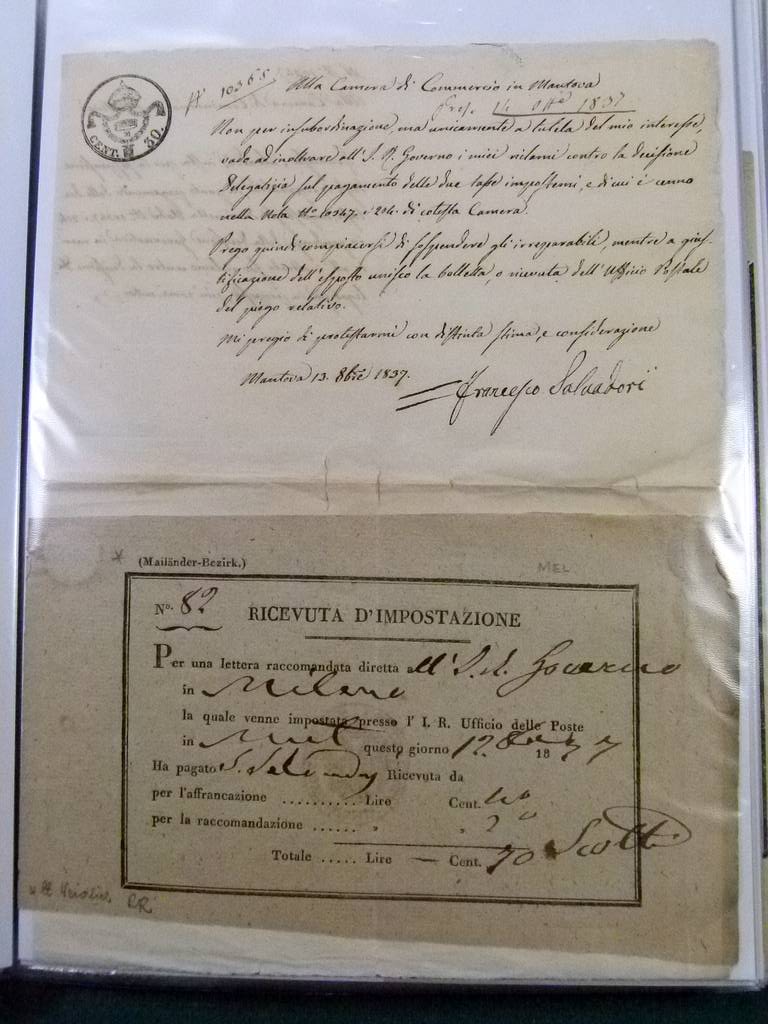 CENT. 30.
N° 10368
Alla Camera di Commercio in Mantova
pres. 14 Ottē 1837
Non per insubordinazione, ma unicamente a tutela del mio interesse,
vado ad inoltrare all'I. R. Governo i miei richiami contro la decisione
Delegatizia sul pagamento delle due tasse impostemi, e di cui è cenno
nella Nota N° 10347. e 204. di cotesta Camera.
Prego quindi compiacersi di sospendere gli irreparabili, mentre a gius-
tificazione dell'esposto unisco la bolletta, o ricevuta dell'Uffizio Postale
del piego relativo.
Mi pregio di protestarmi con distinta stima, e considerazione
Mantova 13. 8brē 1837.
Francesco Salvadori
(Mailänder-Bezirk.)
MEL
N°. 82
RICEVUTA D'IMPOSTAZIONE
Per una lettera raccomandata diretta all' I. R. Governo
in Milano
la quale venne impostata presso l' I. R. Ufficio delle Poste
in questo giorno 12. 1837
Ha pagato Ricevuta da
per l'affrancazione .......... Lire Cent. 40
per la raccomandazione ...... „ „ 30
Totale ..... Lire — Cent. 70 Scotti
RR